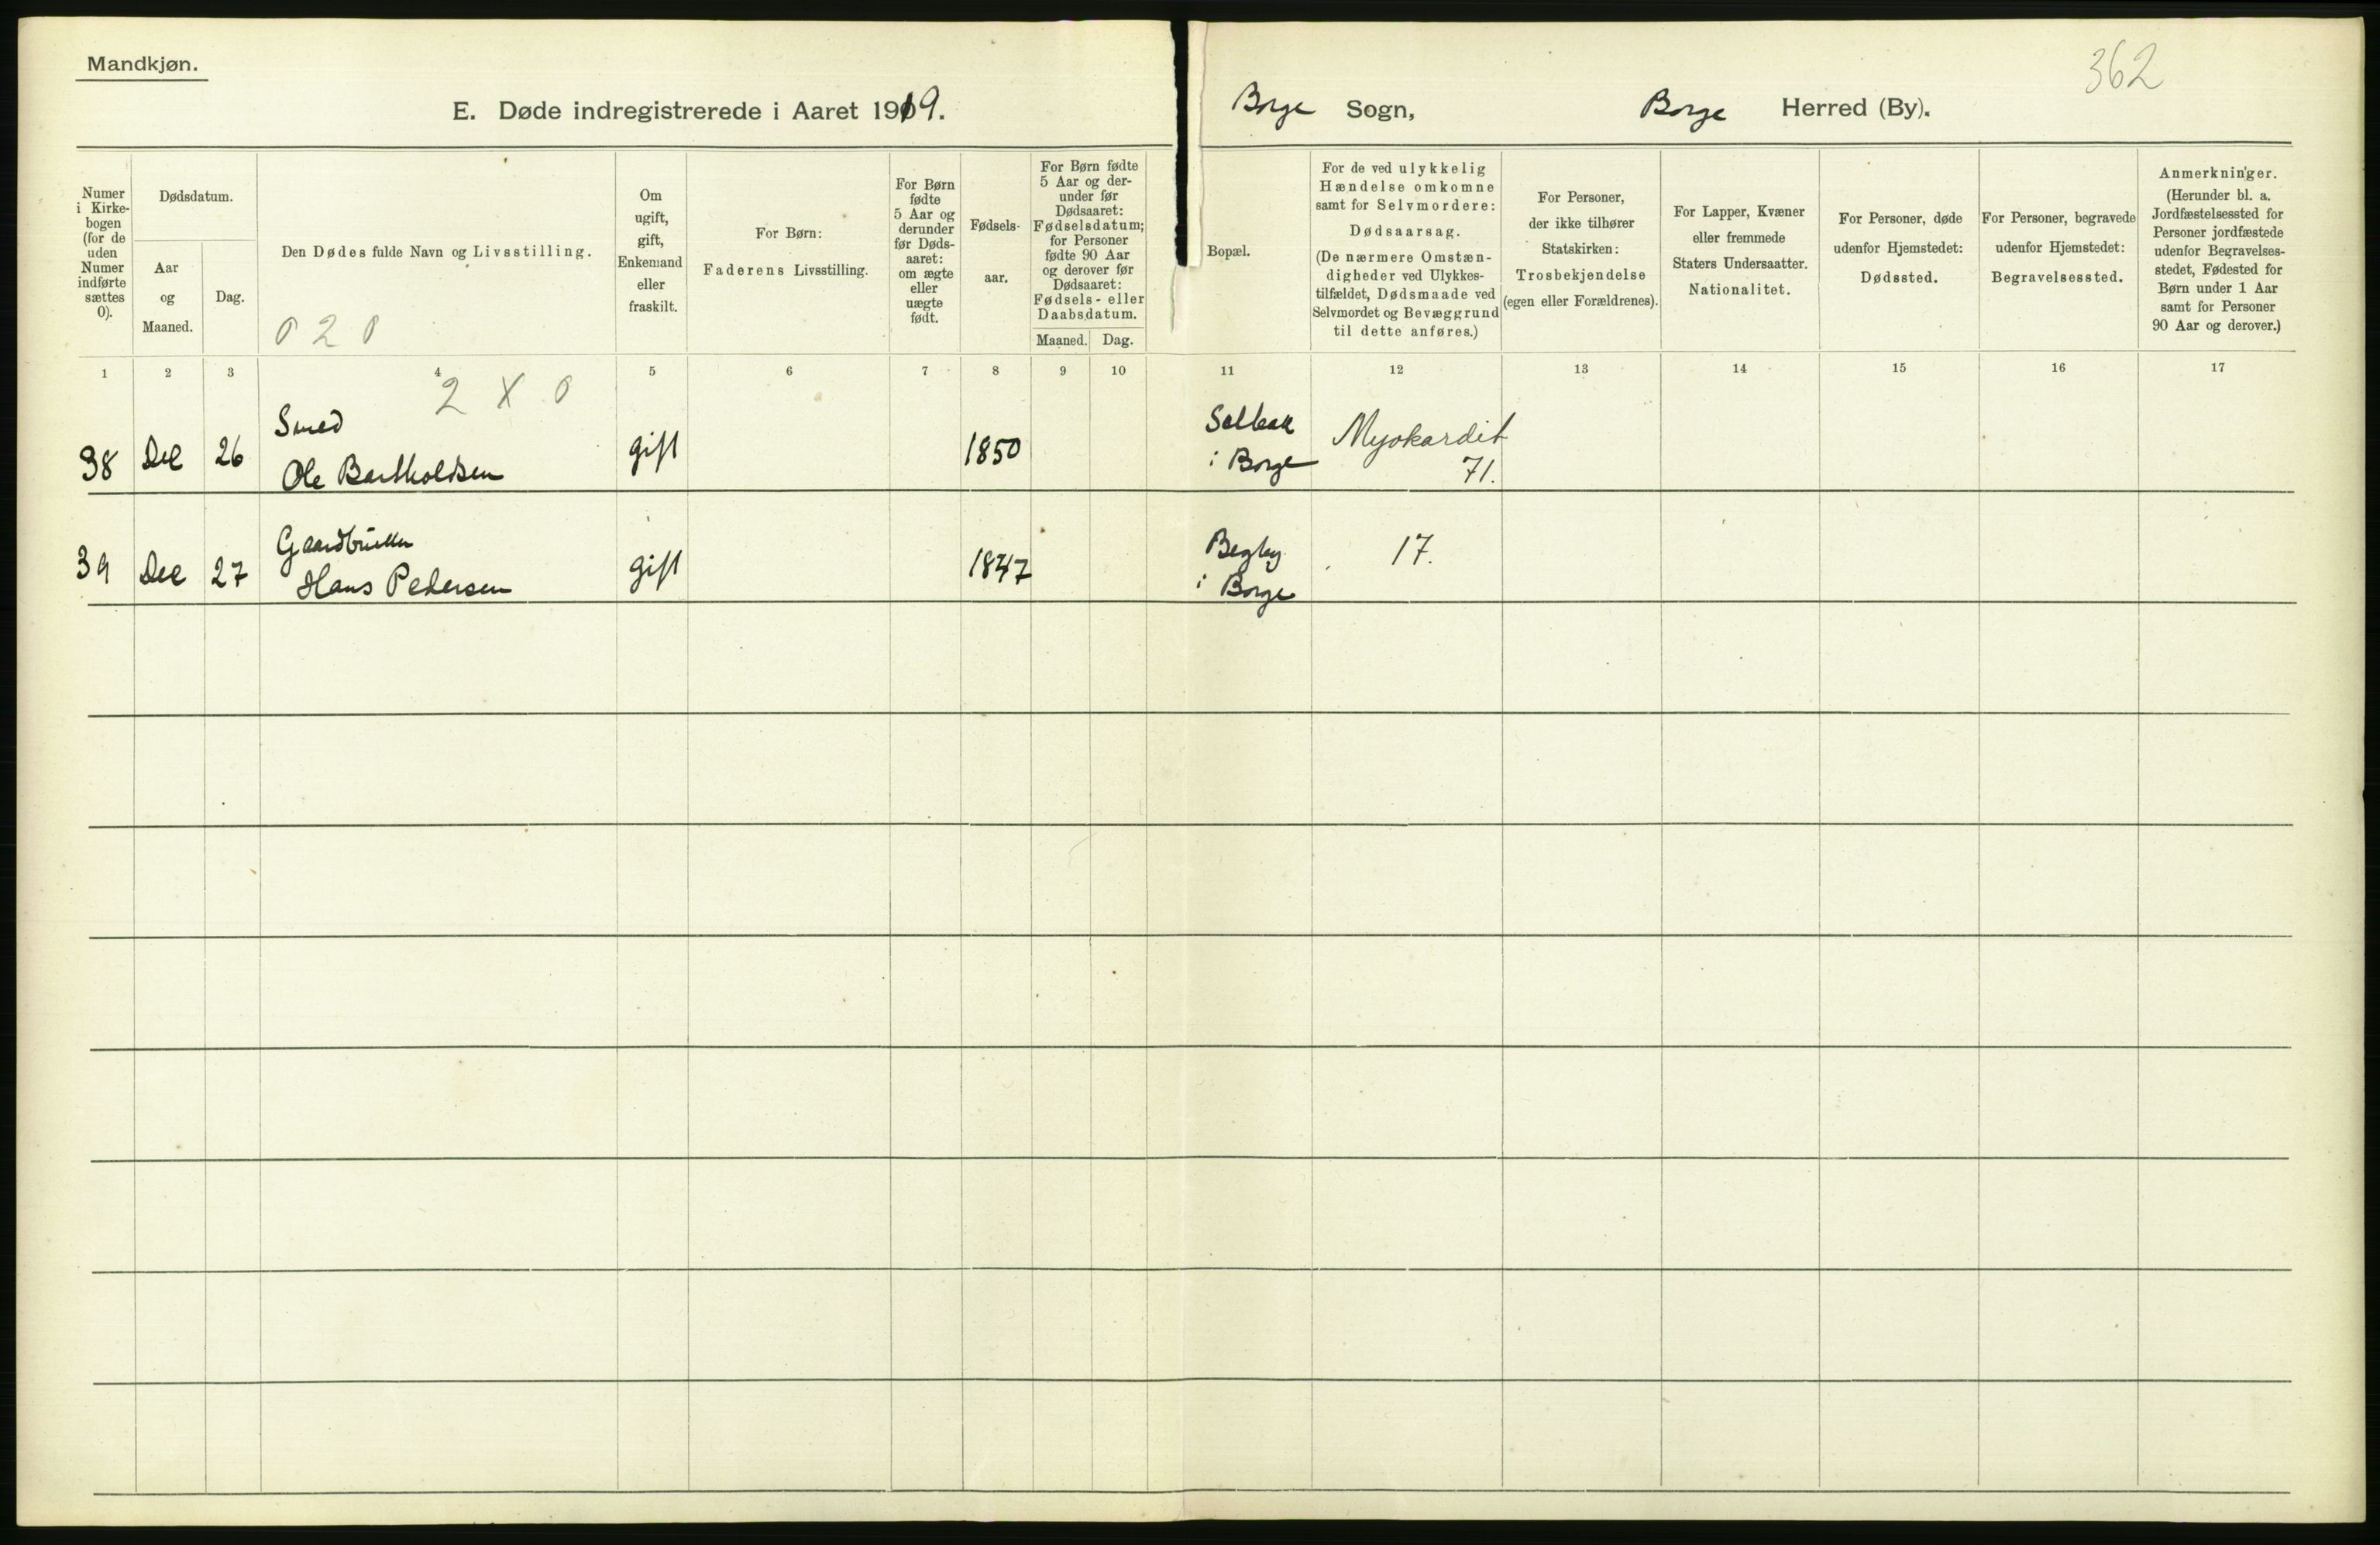 Mandkjøn.
362
E. Døde indregistrerede i Aaret 1919.
Borge Sogn, Borge Herred (By).
Numer i Kirke-bogen (for de uden Numer indførte sættes 0).
Dødsdatum.
Aar og Maaned.
Dag.
Den Dødes fulde Navn og Livsstilling.
0 2 0
Om ugift, gift, Enkemand eller fraskilt.
For Børn: Faderens Livsstilling.
For Børn fødte 5 Aar og derunder før Døds-aaret: om ægte eller uægte født.
Fødsels-aar.
For Børn fødte 5 Aar og der-under før Dødsaaret: Fødselsdatum; for Personer fødte 90 Aar og derover før Dødsaaret: Fødsels- eller Daabsdatum.
Maaned. Dag.
Bopæl.
For de ved ulykkelig Hændelse omkomne samt for Selvmordere: Dødsaarsag. (De nærmere Omstæn-digheder ved Ulykkes-tilfældet, Dødsmaade ved Selvmordet og Bevæggrund til dette anføres.)
For Personer, der ikke tilhører Statskirken: Trosbekjendelse (egen eller Forældrenes).
For Lapper, Kvæner eller fremmede Staters Undersaatter. Nationalitet.
For Personer, døde udenfor Hjemstedet: Dødssted.
For Personer, begravede udenfor Hjemstedet: Begravelsessted.
Anmerkninger. (Herunder bl. a. Jordfæstelsessted for Personer jordfæstede udenfor Begravelses-stedet, Fødested for Børn under 1 Aar samt for Personer 90 Aar og derover.)
1 2 3 4 5 6 7 8 9 10 11 12 13 14 15 16 17
2 X 0
Smed
38 Dec 26 Ole Bartholdsen gift 1850
i Borge
Myokardit
71.
Gaardbruker
39 Dec 27 Hans Pedersen gift 1847
Begby
i Borge
17.